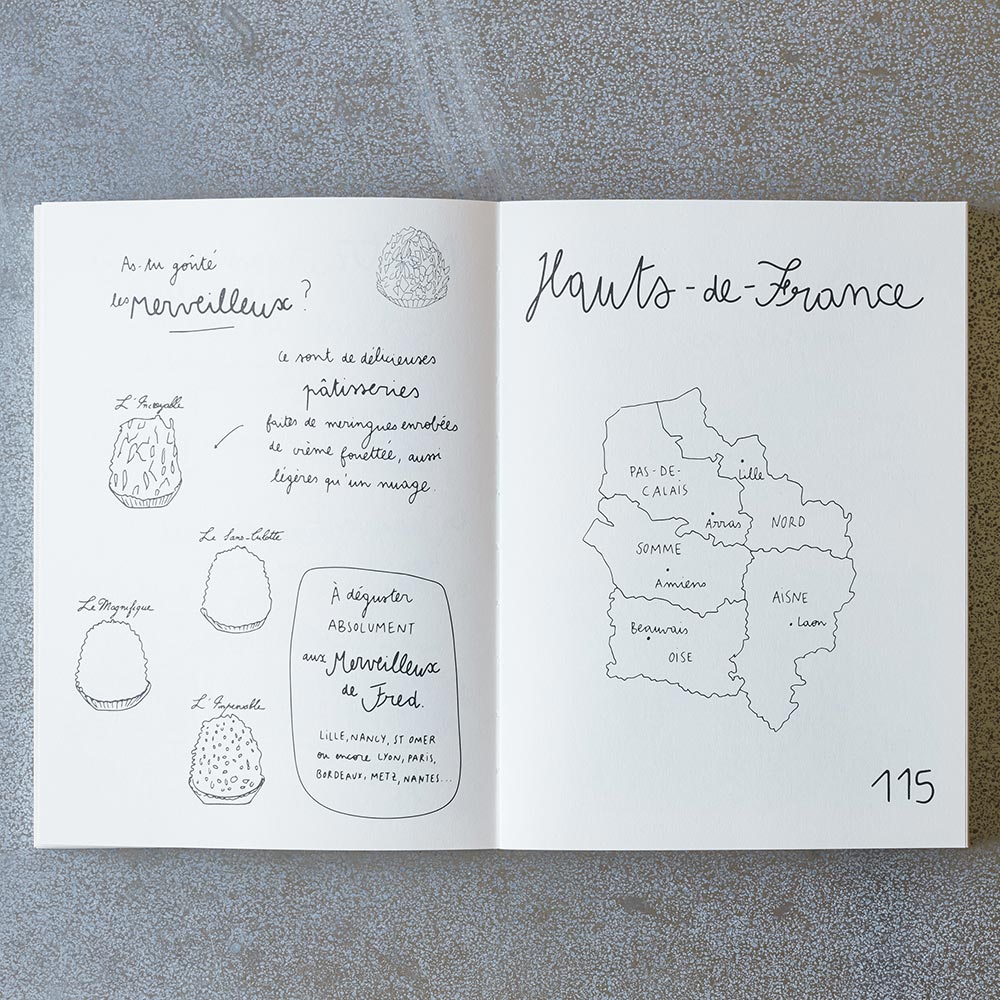 As-tu goûté
les Merveilleux ?
ce sont de délicieuses
pâtisseries
faites de meringues enrobées
de crème fouettée, aussi
légères qu'un nuage.
L'Incroyable
Le Sans-Culotte
Le Magnifique
L'Impensable
À déguster
ABSOLUMENT
aux Merveilleux
de Fred.
LILLE, NANCY, ST OMER
ou encore LYON, PARIS,
BORDEAUX, METZ, NANTES...
Hauts-de-France
PAS-DE-
CALAIS
Lille
Arras
NORD
SOMME
Amiens
AISNE
Laon
Beauvais
OISE
115